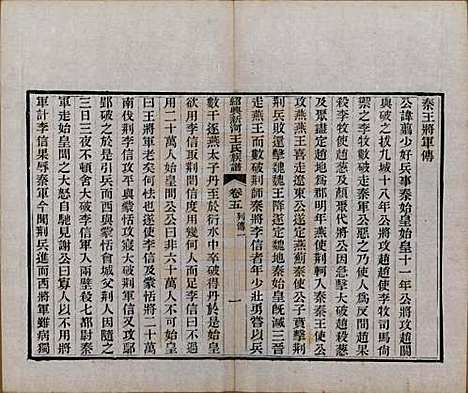 秦王將軍傳
公諱翦少好兵事秦始皇始皇十一年公將攻趙閼
與破之拔九城十八年公將攻趙趙使李牧司馬尚
禦之李牧數破走秦軍公惡之乃使人為反間趙果
殺李牧使趙葱及顏聚代將公因急擊大破趙殺葱
遂定趙地為郡明年燕使荊軻入秦秦王使公
攻燕燕王喜走遼東公遂定燕薊秦使公子賁擊荊
荊兵敗還擊魏魏王降遂定魏地秦始皇既滅三晉
走燕王而數破荊師秦將李信者年少壯勇嘗以兵
紹興新河王氏族譜
卷五
列傳一
一
數千逐燕太子丹至於衍水中卒破得丹於是始皇
問李信曰吾欲取荊度用幾何人而足李信曰不過
用二十萬人始皇問公公曰非六十萬人不可始皇
曰王將軍老矣何怯也遂使李信及蒙恬將二十萬
南伐荊李信攻平與蒙恬攻寢大破荊軍信又攻鄢
郢破之於是引兵而西與蒙恬會城父荊人因隨之
三日三夜不頓舍大破李信入兩壁殺七都尉秦
軍走始皇聞之大怒自馳見謝公曰寡人以不用將
軍計李信果辱秦軍今聞荊兵進而西將軍雖病獨